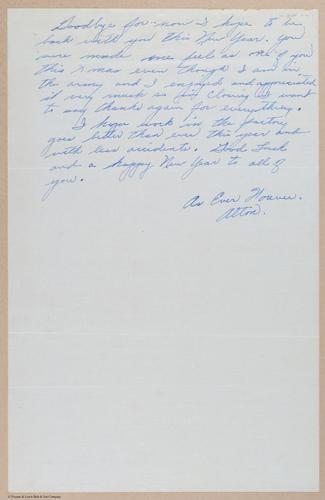 Goodbye for now I hope to be
back with you this New Year. you
sure made me feel as one of you
this X-mas even though I am in
the army and I enjoyed and appreciated
it very much as I'm closing I want
to say thanks again for everything.
I hope work in the factory
goes better than ever this year and
with less accidents. Good Luck
and a happy New Year to all of
you.
As Ever
Alton.